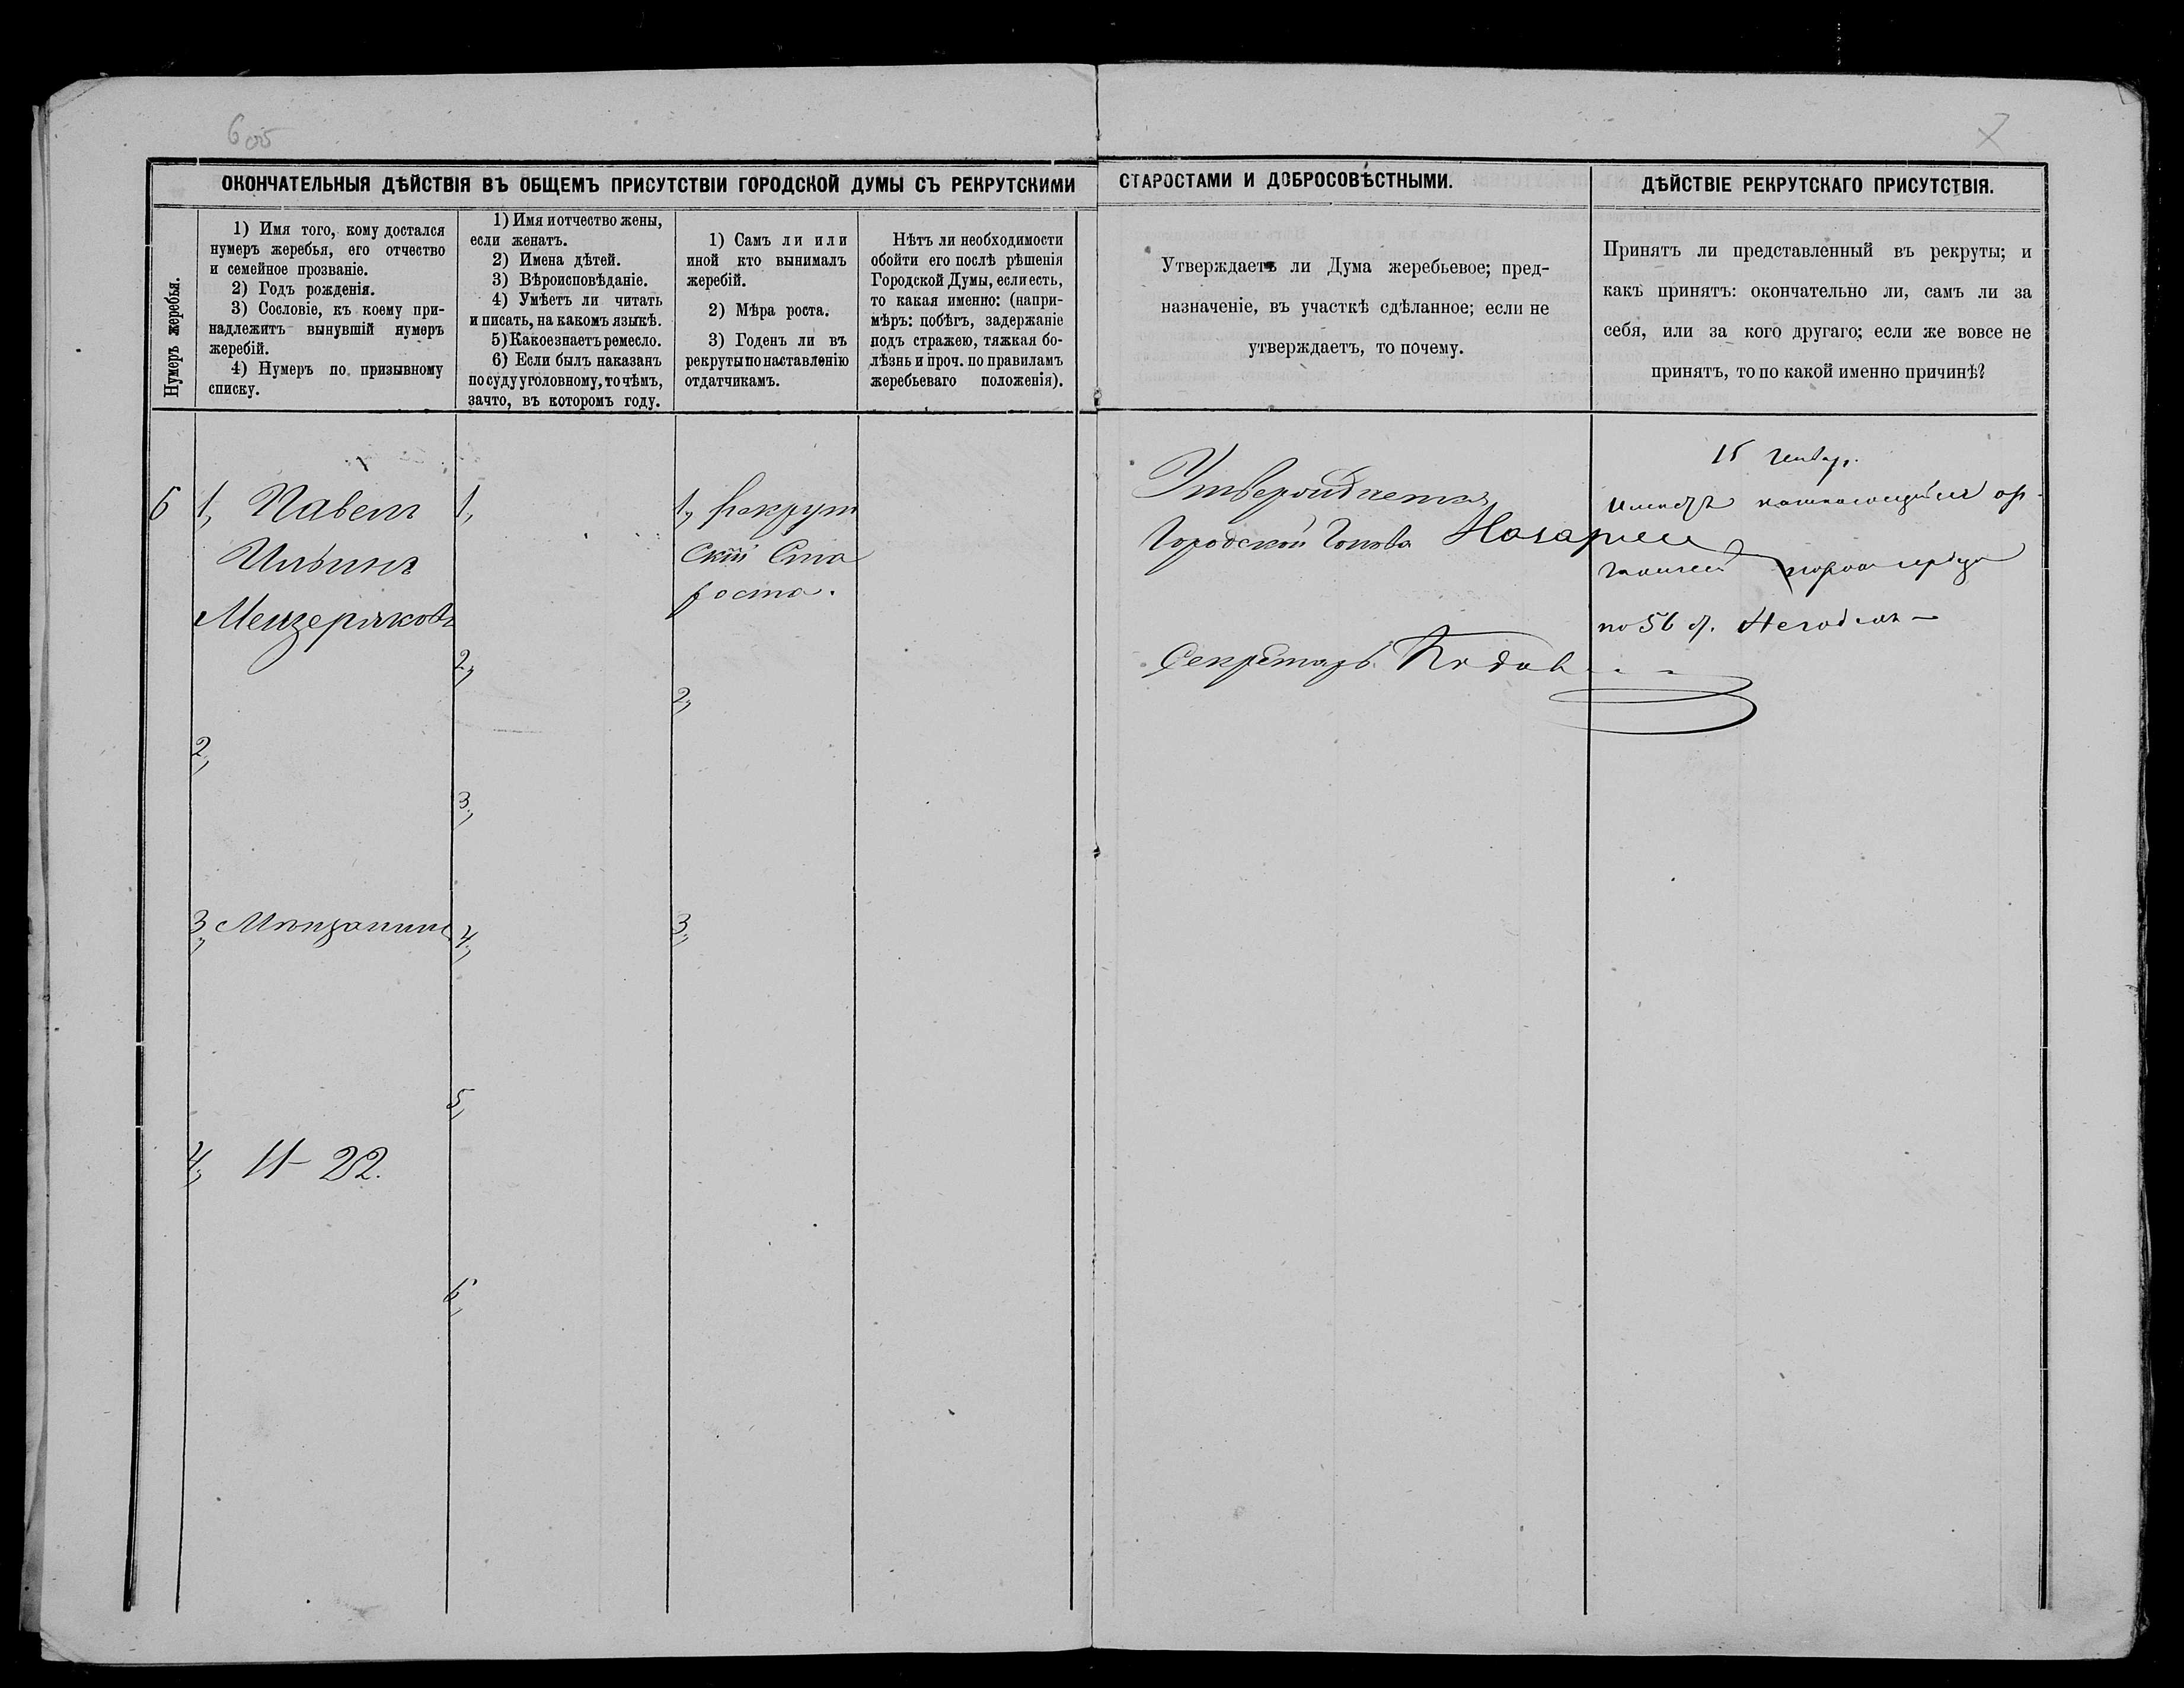 6 об
7
ОКОНЧАТЕЛЬНЫЯ ДѢЙСТВІЯ ВЪ ОБЩЕМЪ ПРИСУТСТВІИ ГОРОДСКОЙ ДУМЫ СЪ РЕКРУТСКИМИ СТАРОСТАМИ И ДОБРОСОВѢСТНЫМИ.
ДѢЙСТВІЕ РЕКРУТСКАГО ПРИСУТСТВІЯ.
Нумеръ жеребья.
1) Имя того, кому достался
нумеръ жеребья, его отчество
и семейное прозваніе.
2) Годъ рожденія.
3) Сословіе, къ коему при-
надлежитъ вынувшій нумеръ
жеребій.
4) Нумеръ по призывному
списку.
1) Имя и отчество жены,
если женатъ.
2) Имена дѣтей.
3) Вѣроисповѣданіе.
4) Умѣетъ ли читать
и писать, на какомъ языкѣ.
5) Какое знаетъ ремесло.
6) Если былъ наказанъ
по суду уголовному, то чѣмъ,
за что, въ которомъ году.
1) Самъ ли или
иной кто вынималъ
жеребій.
2) Мѣра роста.
3) Годенъ ли въ
рекруты по наставленію
отдатчикамъ.
Нѣтъ ли необходимости
обойти его послѣ рѣшенія
Городской Думы, если есть,
то какая именно: (напри-
мѣръ: побѣгъ, задержаніе
подъ стражею, тяжкая бо-
лѣзнь и проч. по правиламъ
жеребьеваго положенія).
Утверждаетъ ли Дума жеребьевое; пред-
назначеніе, въ участкѣ сдѣланное; если не
утверждаетъ, то почему.
Принятъ ли представленный въ рекруты; и
какъ принятъ: окончательно ли, самъ ли за
себя, или за кого другаго; если же вовсе не
принятъ, то по какой именно причинѣ?
6
1, Павелъ
Ильинъ
Мещеряковъ
2,
3, Мѣщанинъ
4, 11–22.
1,
2,
3,
4,
5,
6,
1, Рекрут
скій Ста
роста.
2,
3,
Утверждается
Городской Голова
Секретарь
15 Январ.
по 56 Негоденъ —